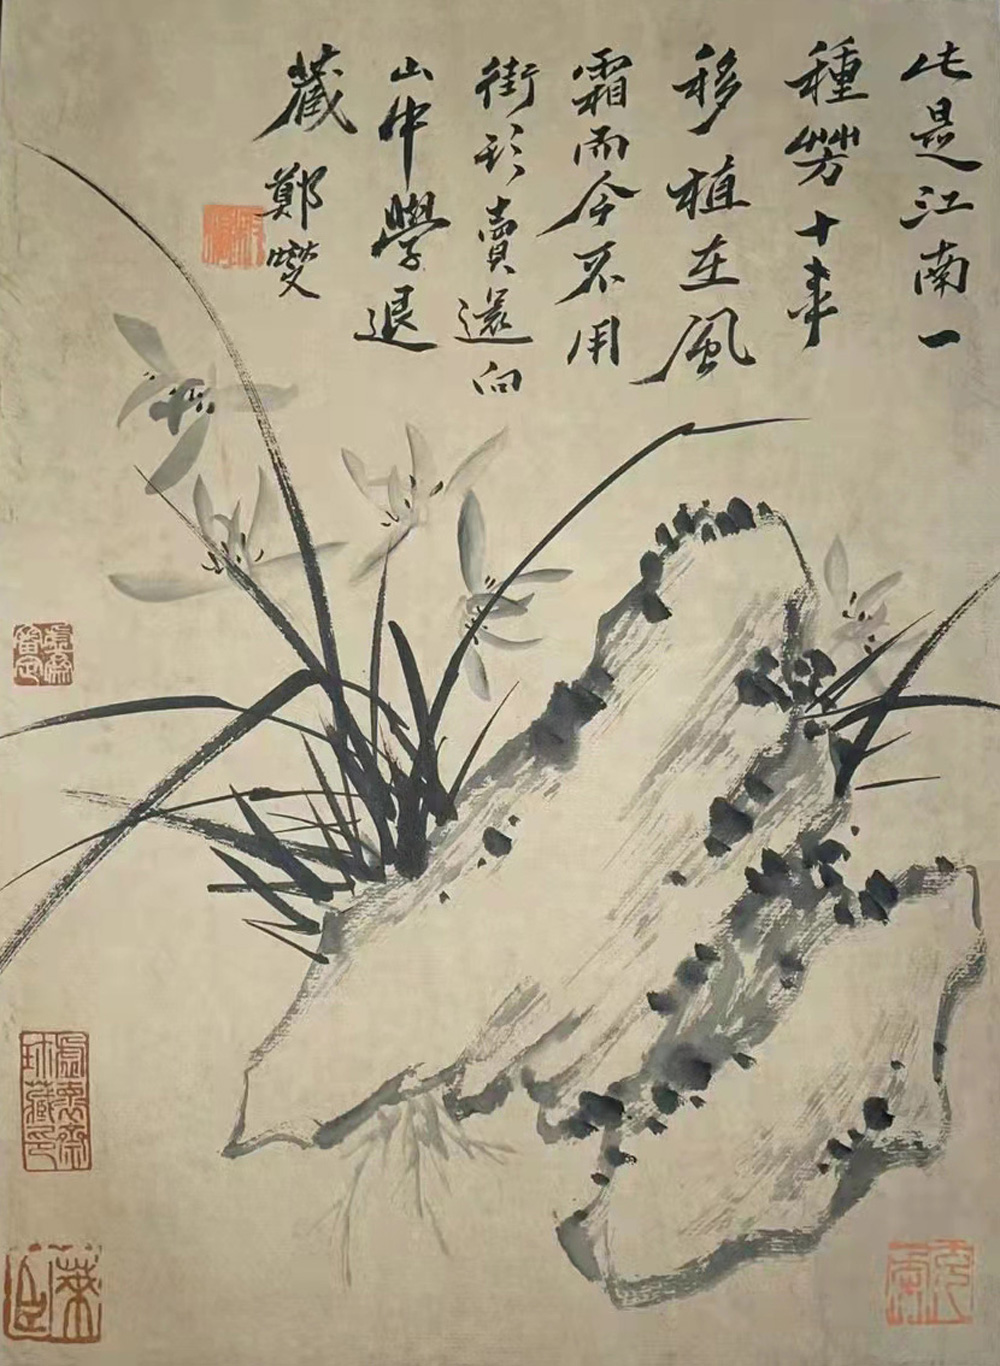 此是江南一
種芳十年
移植在風
霜而今不用
街頭賣還向
山中學退
藏 鄭燮
虛齋審定
萊臣